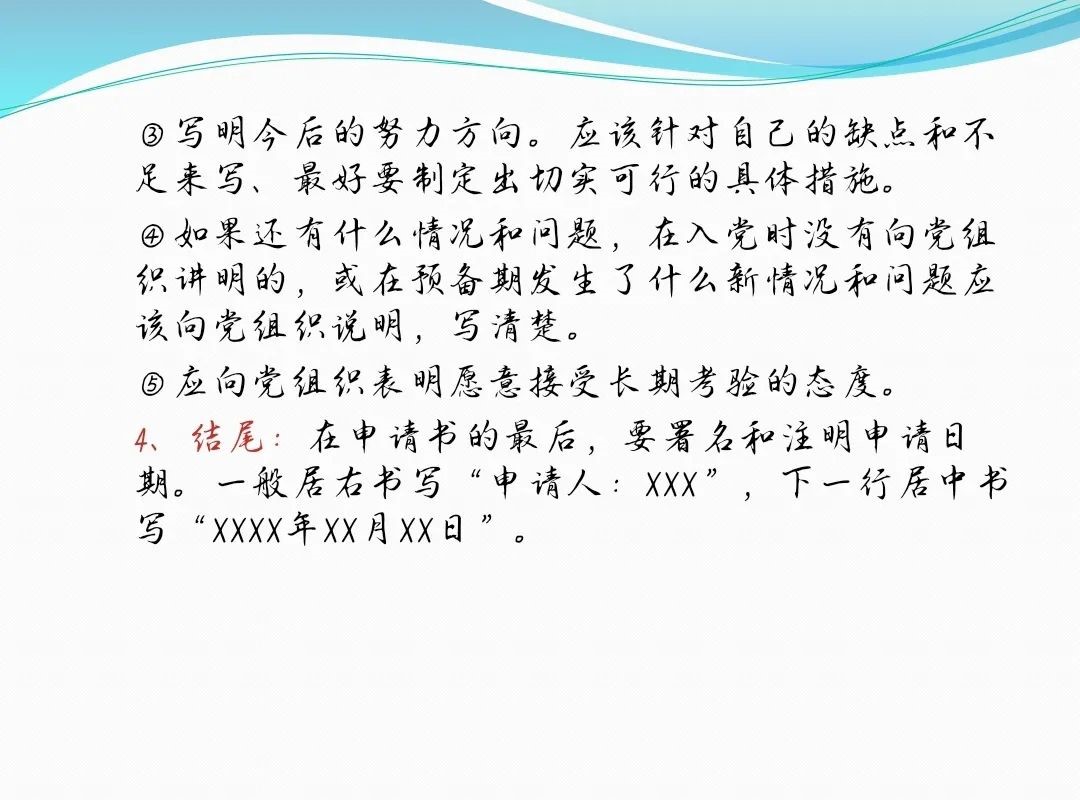 ③写明今后的努力方向。应该针对自己的缺点和不
足来写、最好要制定出切实可行的具体措施。
④如果还有什么情况和问题，在入党时没有向党组
织讲明的，或在预备期发生了什么新情况和问题应
该向党组织说明，写清楚。
⑤应向党组织表明愿意接受长期考验的态度。
4、结尾：在申请书的最后，要署名和注明申请日
期。一般居右书写“申请人：XXX”，下一行居中书
写“XXXX年XX月XX日”。